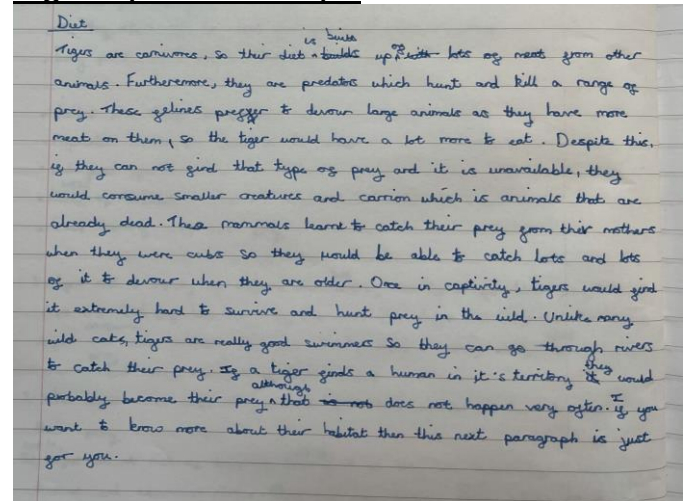 Diet
Tigers are carnivores, so their diet is built up of lots of meat from other
animals. Furthermore, they are predators which hunt and kill a range of
prey. These felines prefer to devour large animals as they have more
meat on them, so the tiger would have a lot more to eat. Despite this,
if they can not find that type of prey and it is unavailable, they
would consume smaller creatures and carrion which is animals that are
already dead. These mammals learnt to catch their prey from their mothers
when they were cubs so they would be able to catch lots and lots
of it to devour when they are older. Once in captivity, tigers would find
it extremely hard to survive and hunt prey in the wild. Unlike many
wild cats, tigers are really good swimmers so they can go through rivers
to catch their prey. If a tiger finds a human in it's territory they would
probably become their prey although that does not happen very often. If you
want to know more about their habitat then this next paragraph is just
for you.